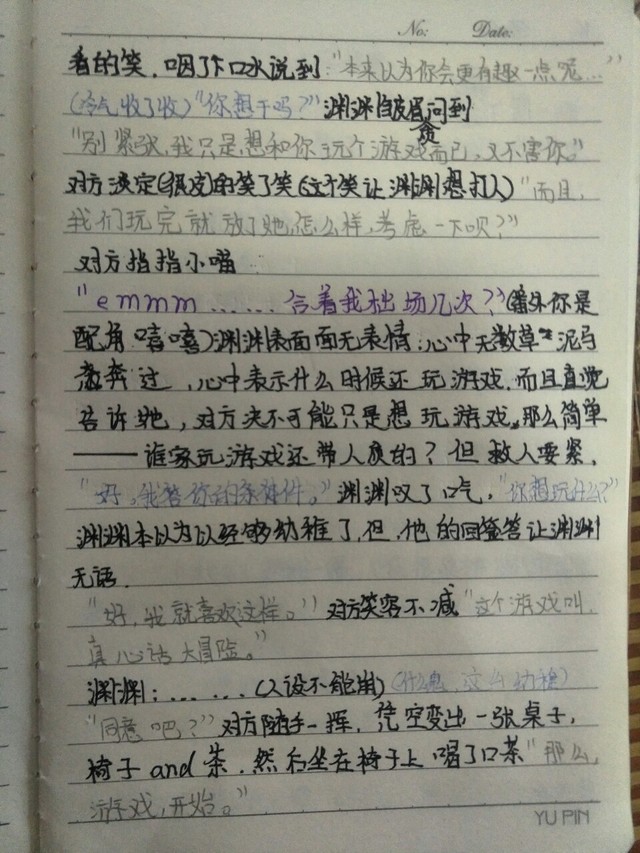 No: Date:
看的笑，咽了下口水说到："本来以为你会更有趣一点呢…"
(冷气收了收)"你想干吗？"渊渊皱眉问到
"别紧张，我只是想和你玩个游戏而已，又不害你。"
对方淡定(很皮)的笑了笑(这个笑让渊渊想打人)"而且，
我们玩完就放了她，怎么样，考虑一下呗？"
对方指指小喵
"emmm……合着我出场几次？"(番外你是
配角嘻嘻)渊渊表面面无表情，心中无数草泥马
奔过，心中表示什么时候还玩游戏，而且直觉
告诉她，对方决不可能只是想玩游戏，那么简单
——谁家玩游戏还带人质的？但救人要紧，
"好，我答你的条件。"渊渊叹了口气，"你想玩什么？"
渊渊本以为以经够幼稚了，但，他的回答让渊渊
无语．
"好，我就喜欢这样。"对方笑容不减"这个游戏叫，
真心话大冒险。"
渊渊：……(人设不能崩)(什么鬼，这么幼稚)
"同意吧？"对方随手一挥，凭空变出一张桌子，
椅子and茶，然后坐在椅子上，喝了口茶"那么，
游戏，开始。"
YU PIN